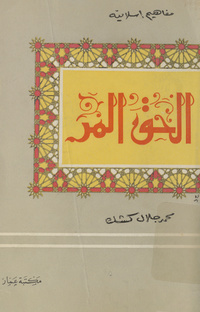 مفاهيم إسلامية
الحق المر
محمد جلال كشك
مكتبة عمار